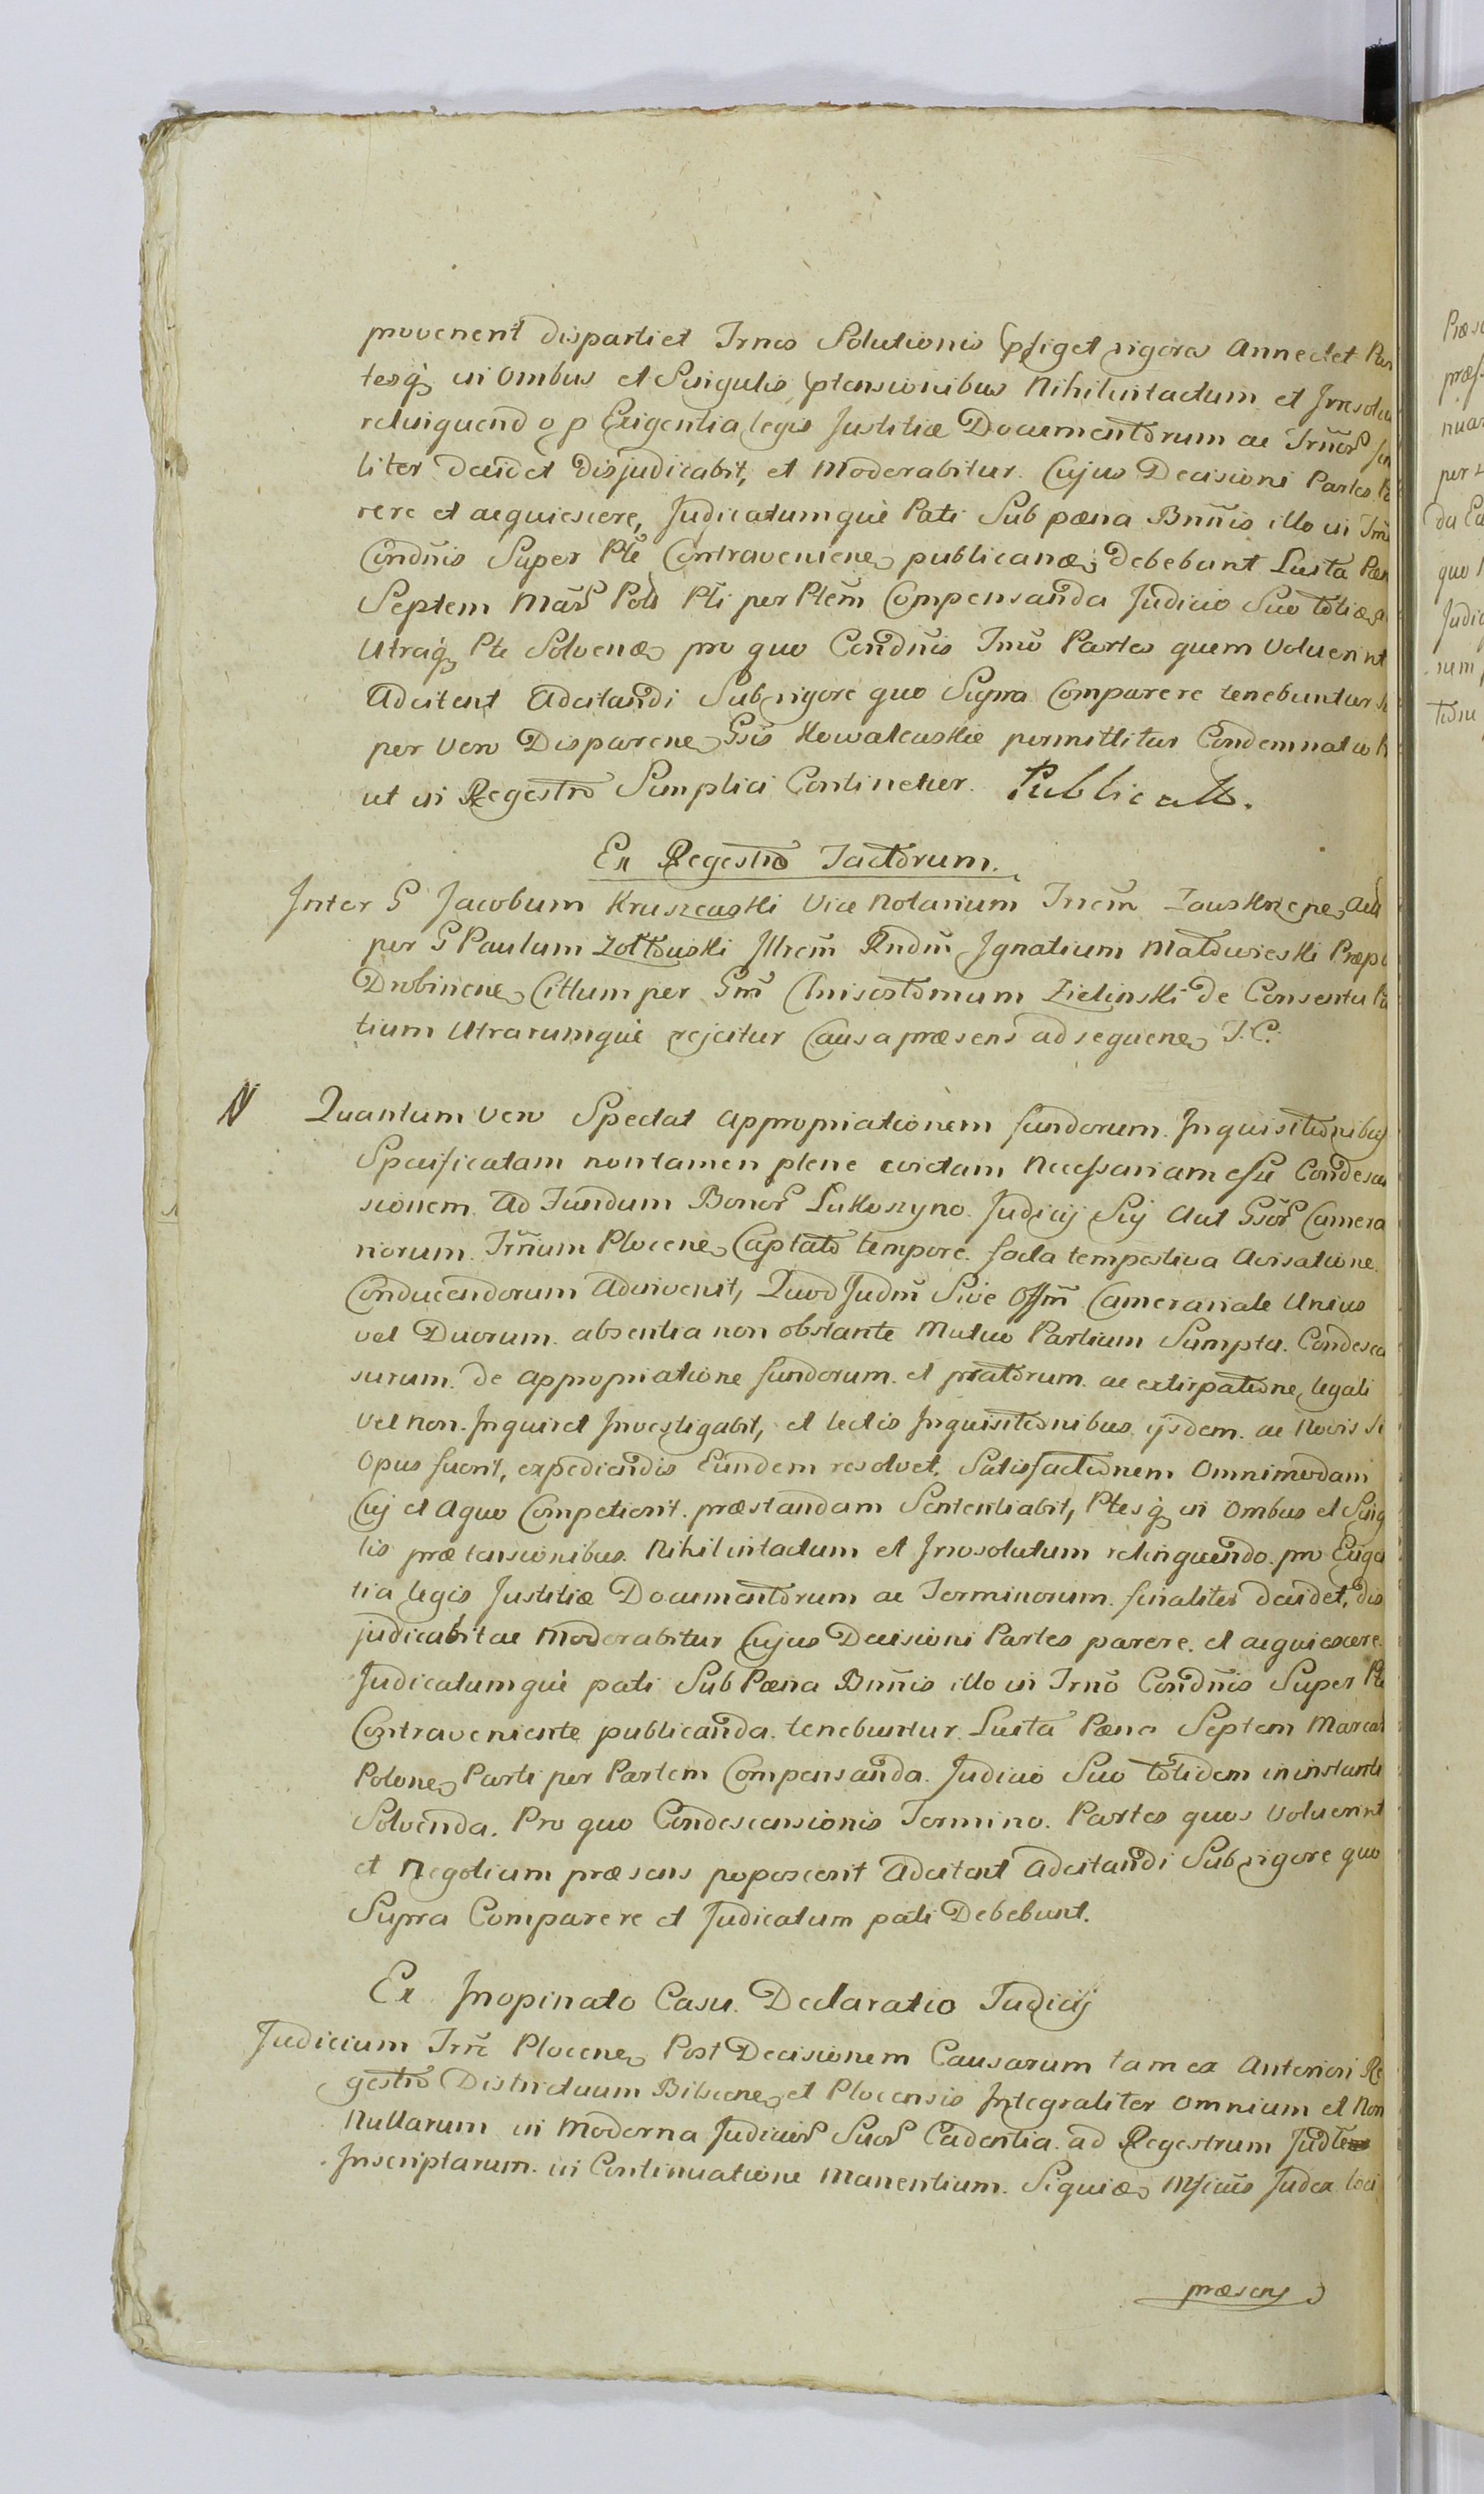 provenerit dispartiet Trnos Solutionis pfiget rigores Annectet Par
tesq3 in Ombus et Singulis ptensionibus Nihil intactum et Irresolu
relinquendo p Exigentia legis Justitiæ Documentorum ac Trnor
liter decidet disjudicabit, et Moderabitur. Cujus Decisioni Partes Pa
rere et acquiescere, Judicatumque Pati Sub pæna Bnnis illo in Trn
Condnis Super Pte Contraveniene publicanæ; debebunt Luita Pæn
Septem Mar Pol Pti per Ptem Compensanda Judicio Suo totiæ
Utraq3 Pte Solvenæ pro quo Condnis Trno Partes quem Voluerint
Adcitent Adcitandi Sub rigore quo Supra Comparere tenebuntur
per Vero Disparene Gsis Kowalewskie permittitur Condemnatio
ut in Regestro Simplici Continetur. Publicatt.
Ex Regestro Tactorum.
Inter G Jacobum Kruszewski Vice Notarium Trrem Zauskrzene, Act
per G Paulum Zołtowski Illrem Rndm Ignatium Matowieski Præp
Drobinene Cittum per Gm Chrisostomum Zielinski de Consensu Pa
tium Utrarumque rejcitur Causa præsens ad sequene T. C.
N Quantum Vero Spectat Appropriationem fundorum. Inquisitionibus
Specificatam non tamen plene evictam Necessariam esse Condescen
sionem. Ad Fundum Bonor Lukoszyno. Judicij Sij Aut Gsor Camera
riorum. Trrium Plocene Captato tempore. facta tempestiva Avisatione.
Conducendorum Adinvenit, Quod Judm Sive Offm Camerariale Unius
vel Duorum. absentia non obstante Mutuo Partium Sumptu. Condescen
surum. de appropriatione fundorum. et pratorum. ac extirpatione, legali
Vel non. Inquiret Investigabit, et lectis Inquisitionibus. ijsdem. ac Novis si
Opus fuerit, expediendis Eundem resolvet. Satisfactionem Omnimodam
Cuj et A quo Competierit. præstandam Sententiabit, Ptesq3 in Ombus et Sing
lis prætensionibus. Nihil intactum et Irresolutum relinquendo. pro Exigen
tia legis Justitiæ Documentorum ac Terminorum. finaliter decidet, dis
judicabit ac Moderabitur Cujus Decisioni Partes parere. et acquiescere.
Judicatumque pati Sub Pæna Bnnis illo in Trno Condnis Super Pte
Contraveniente publicanda. tenebuntur. Luita Pæna Septem Marcar
Polone Parti per Partem Compensanda. Judicio Suo totidem in instanti
Solvenda. Pro quo Condescensionis Termino. Partes quos Voluerint
et Negotium præsens poposcerit Adcitent Adcitandi Sub rigore quo
Supra Comparere et Judicatum pati Debebunt.
Ex Inopinato Casu. Declaratio Judicij
Judicium Trre Plocene Post Decisionem Causarum tam ex Anteriori Re
gestro Districtuum Bilscene et Plocensis Integraliter Omnium et Non
Nullarum in Moderna Judicior Suor Cadentia. ad Regestrum
Inscriptarum. in Continuatione Manentium. Siquiæ Mficus Judex loci
præsens